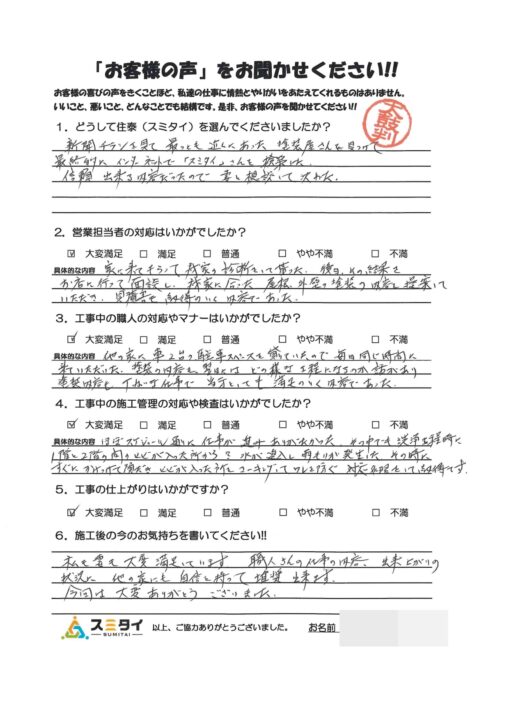 「お客様の声」をお聞かせください!!
お客様の喜びの声をきくことほど、私達の仕事に情熱とやりがいをあたえてくれるものはありません。
いいこと、悪いこと、どんなことでも結構です。是非、お客様の声を聞かせてください!!
太鼓判
1．どうして住泰（スミタイ）を選んでくださいましたか？
新聞チラシを見て 最っとも近くにあった 塗装屋さんを見つけて
最終的に インターネットで「スミタイ」さんを検索した。
信頼 出来る内容だったので 妻と相談して決めた。
2．営業担当者の対応はいかがでしたか？
☑ 大変満足 □ 満足 □ 普通 □ やや不満 □ 不満
具体的な内容 家に来てもらって 我家の診断をして貰った。後日、その結果を
お店に行って面談し、我家に合った 屋根、外壁の塗装の内容を提案して
いただき、見積書も納得のいく内容であった。
3．工事中の職人の対応やマナーはいかがでしたか？
☑ 大変満足 □ 満足 □ 普通 □ やや不満 □ 不満
具体的な内容 他の家に 車2台の駐車スペースを借りていたので 毎日同じ時間に
来ていただいた。塗装の内容も 当日は どの様な工程になるのか 話があり
塗装内容も、ていねいな仕事で 当方としても 満足のいく内容であった。
4．工事中の施工管理の対応や検査はいかがでしたか？
☑ 大変満足 □ 満足 □ 普通 □ やや不満 □ 不満
具体的な内容 ほぼスケジュール通りに仕事が進み ありがたかった。その中でも 洗浄工程時に
1階と2階の間の ヒビが入った所から 水が進入し 雨もりが発生した。その時に
すぐに
5．工事の仕上がりはいかがですか？
☑ 大変満足 □ 満足 □ 普通 □ やや不満 □ 不満
6．施工後の今のお気持ちを書いてください!!
私も妻も 大変満足しています。職人さんの仕事の内容、出来上がりの
状況に 他の家にも 自信を持って 推奨 出来ます。
今回は 大変ありがとう ございました。
スミタイ
SUMITAI
以上、ご協力ありがとうございました。 お名前